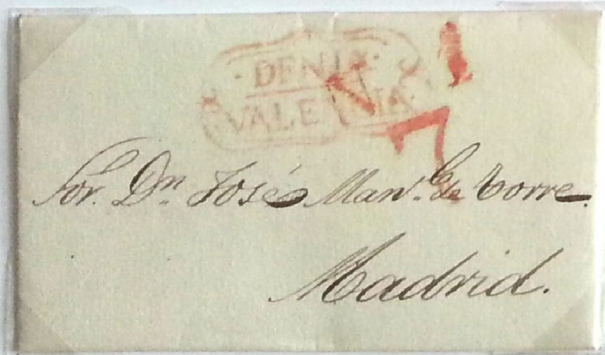 DENIA
VALENCIA
7
Sor. Dn. José Manl. de Torre.
Madrid.